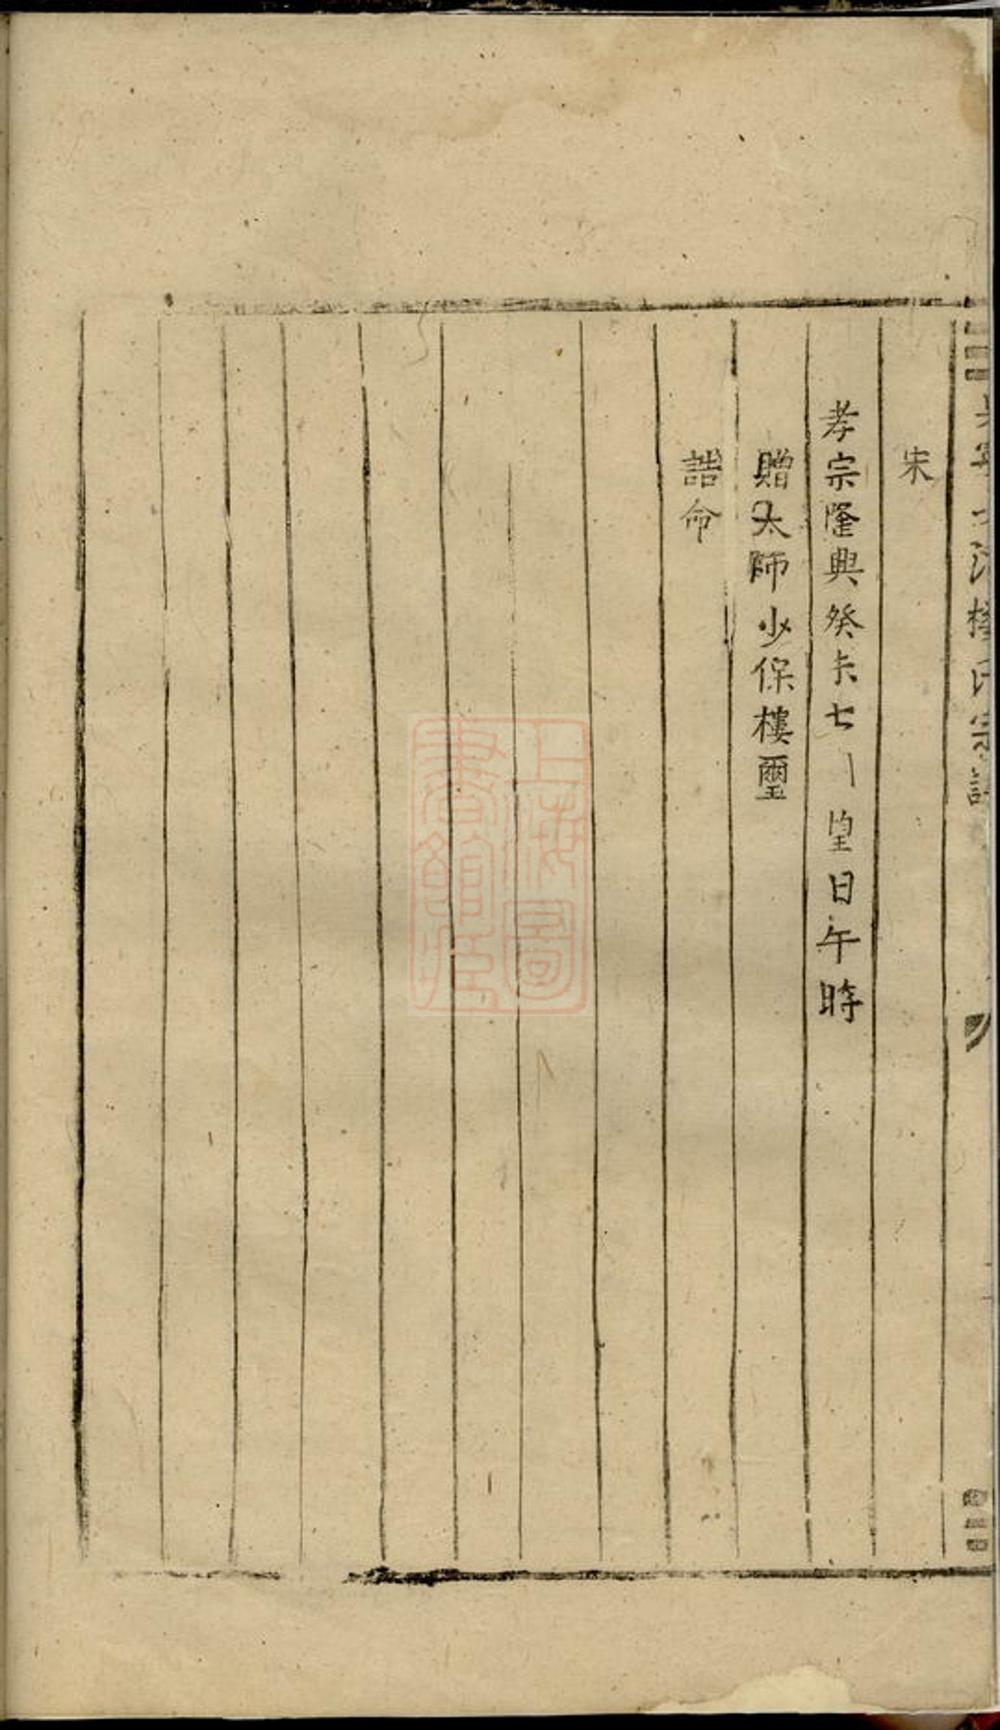 宋
孝宗隆興癸未七 望日午時
贈太師少保樓璽
誥命
樓氏宗譜
上海圖書館藏